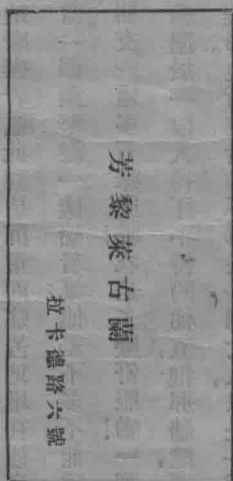 芳黎萊古蘭
拉卡德路六號